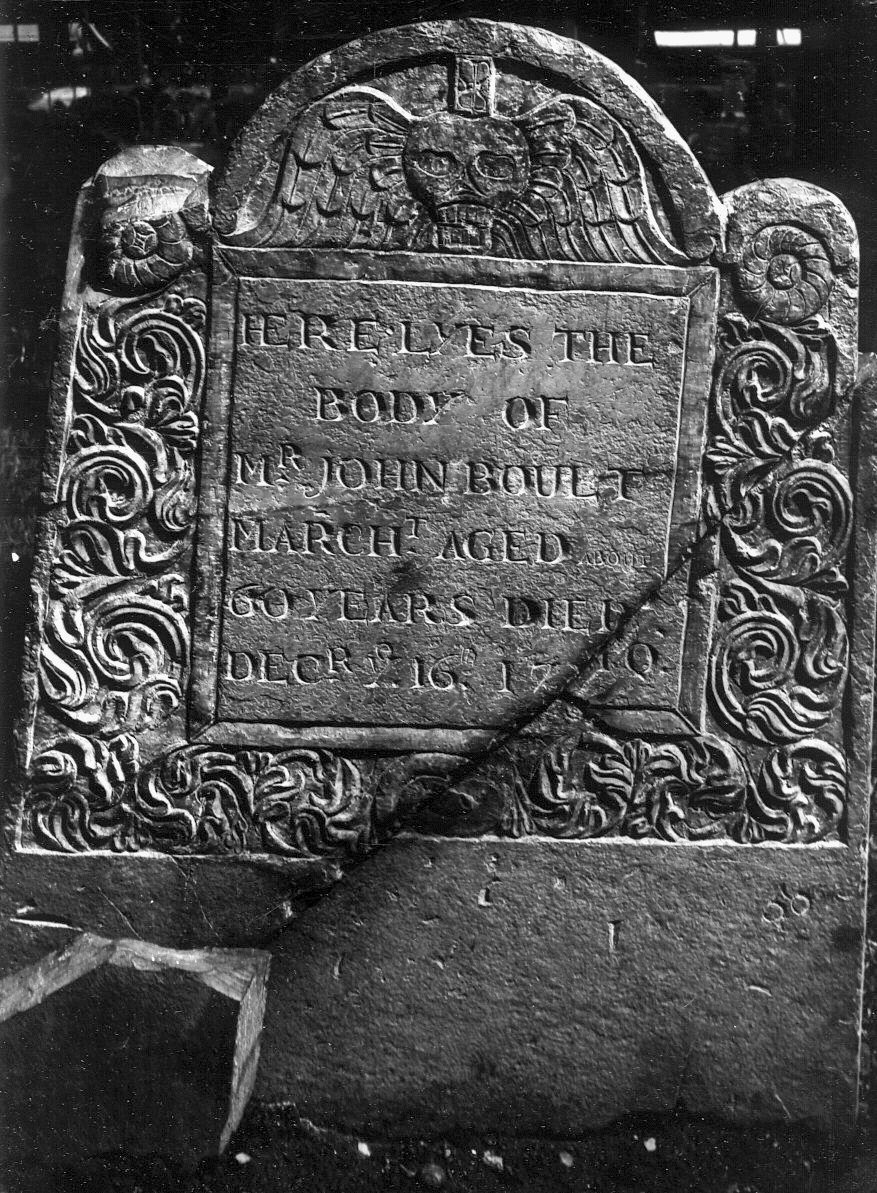 HERE LYES THE
BODY OF
Mʀ JOHN BOULT
MARCHᵀ AGED ABOUT
60 YEARS DIED
DECʀ Yᵉ 16ᵗʰ 1710